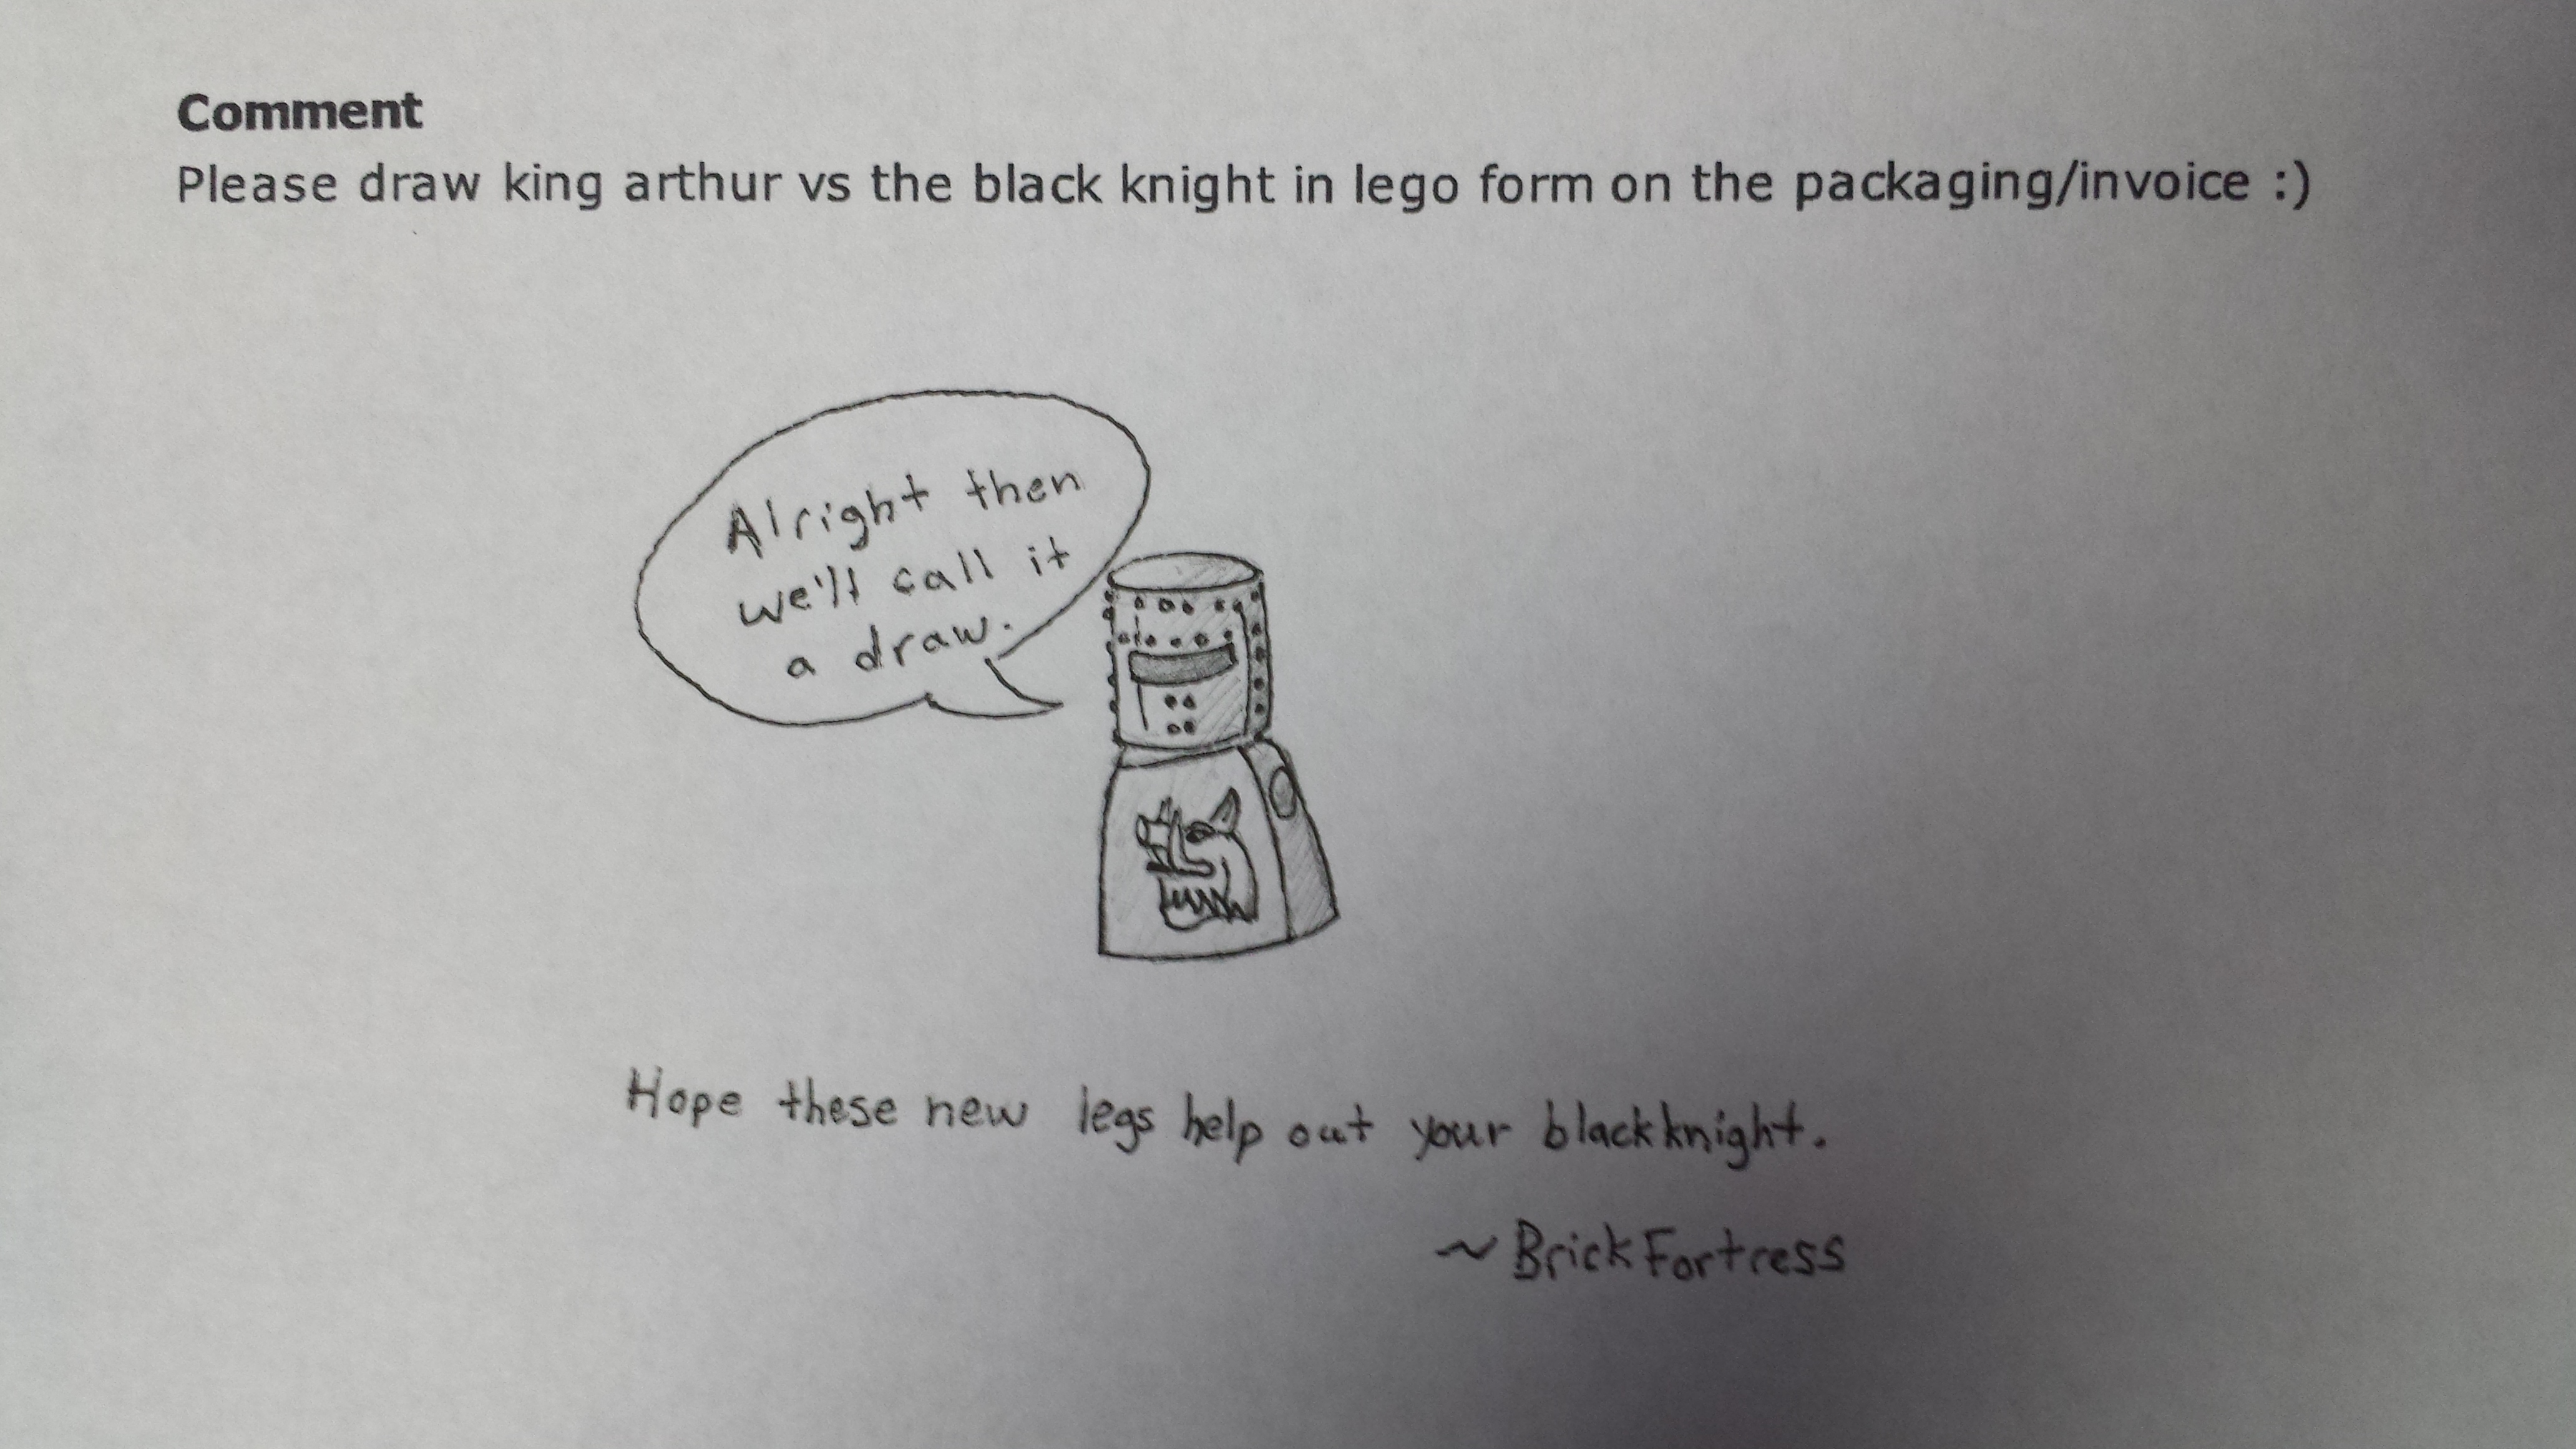 Comment
Please draw king arthur vs the black knight in lego form on the packaging/invoice :)
Alright then
we'll call it
a draw.
Hope these new legs help out your blackknight.
~ BrickFortress